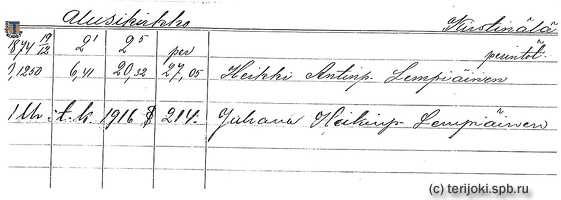 Uusikirkko Kirstinälä
1874 19/12 2¹ 2⁵ per perintöt.
0,1250 6,41 20,32 27,05 Heikki Antinp. Lempiäinen
1 Uk. t.k. 1916 § 214. Juhana Heikinp. Lempiäinen
(c) terijoki.spb.ru